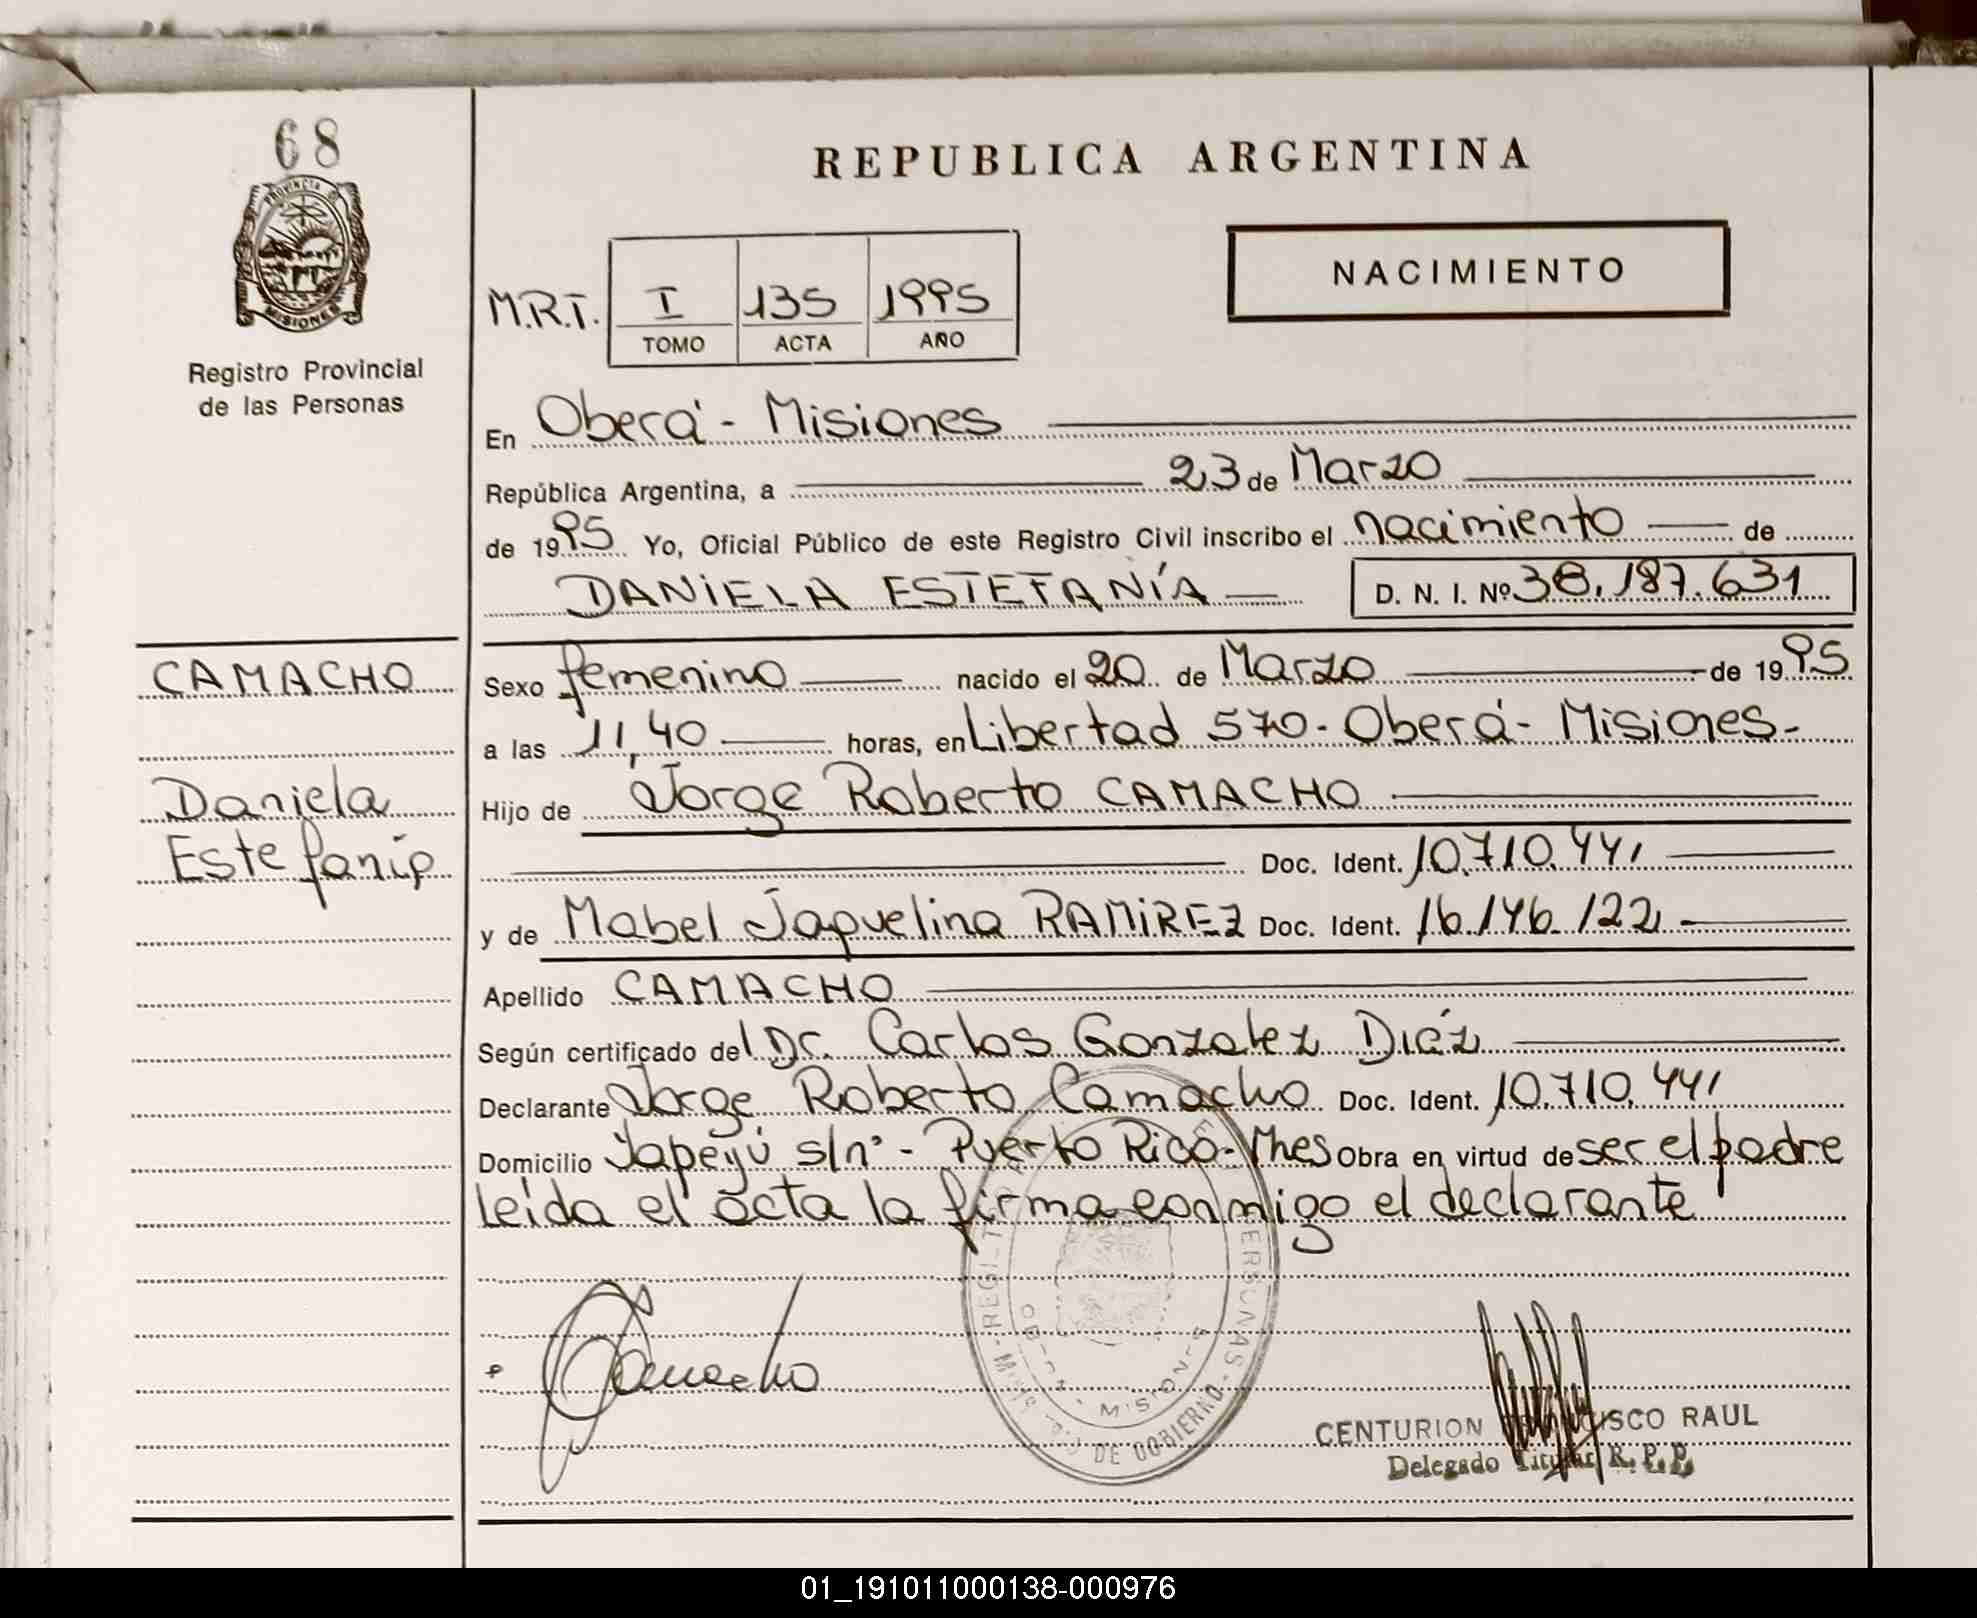 68
PROVINCIA DE
MISIONES
Registro Provincial
de las Personas
REPUBLICA ARGENTINA
NACIMIENTO
M.R.T. I 135 1995
TOMO ACTA AÑO
En Oberá - Misiones
República Argentina, a 23 de Marzo
de 1995 Yo, Oficial Público de este Registro Civil inscribo el nacimiento de
DANIELA ESTEFANÍA D. N. I. Nº 38.187.631
CAMACHO
Daniela
Estefanía
Sexo femenino nacido el 20 de Marzo de 1995
a las 11,40 horas, en Libertad 570 - Oberá - Misiones -
Hijo de Jorge Roberto CAMACHO
Doc. Ident. 10.710.441
y de Mabel Jaquelina RAMIREZ Doc. Ident. 16.146.122
Apellido CAMACHO
Según certificado del Dr. Carlos Gonzalez Diéz
Declarante Jorge Roberto Camacho Doc. Ident. 10.710.441
Domicilio Yapeyú s/nº - Puerto Rico - Mnes Obra en virtud de ser el padre
leida el acta la firma conmigo el declarante
Camacho
MISIONES
DE GOBIERNO
CENTURION FRANCISCO RAUL
Delegado Titular R. P. P.
01_191011000138-000976